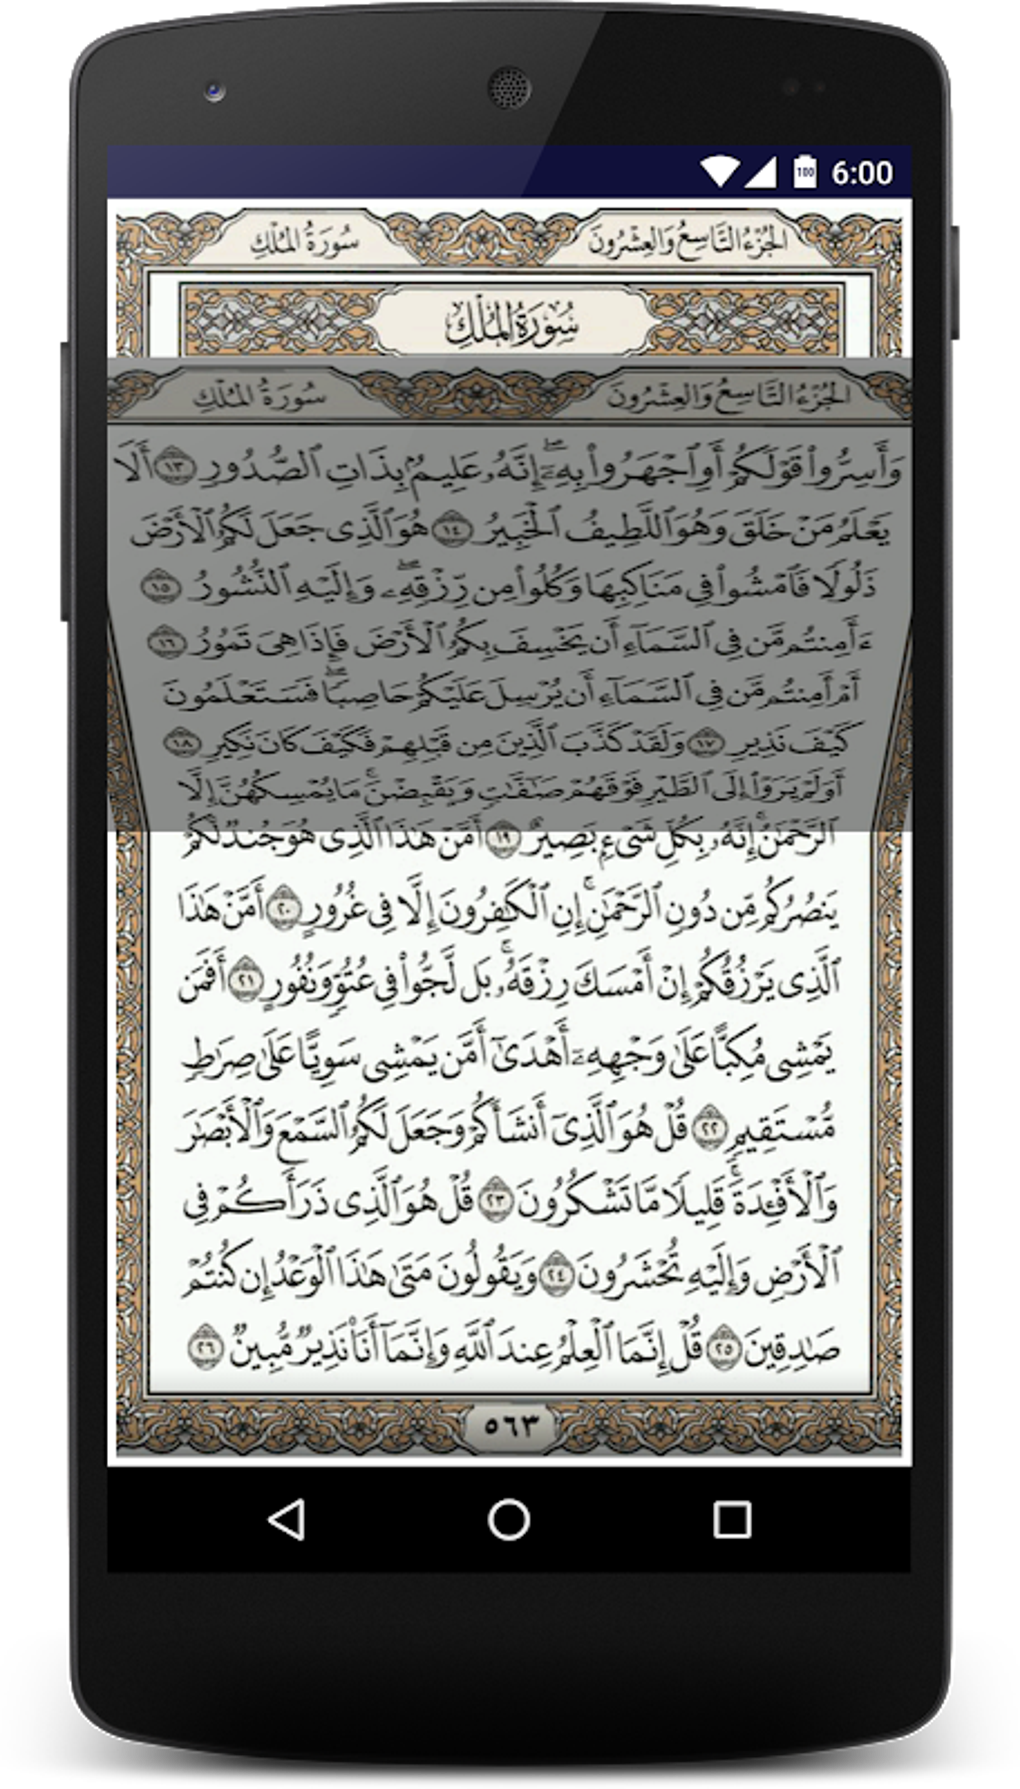 6:00
100
الجُزْءُ التَّاسِعُ وَالعِشْرُونَ سُورَةُ المُلْكِ
سُورَةُ المُلْكِ
الجُزْءُ التَّاسِعُ وَالعِشْرُونَ سُورَةُ المُلْكِ
وَأَسِرُّوا۟ قَوْلَكُمْ أَوِ ٱجْهَرُوا۟ بِهِۦٓ ۖ إِنَّهُۥ عَلِيمٌۢ بِذَاتِ ٱلصُّدُورِ ١٣ أَلَا
يَعْلَمُ مَنْ خَلَقَ وَهُوَ ٱللَّطِيفُ ٱلْخَبِيرُ ١٤ هُوَ ٱلَّذِى جَعَلَ لَكُمُ ٱلْأَرْضَ
ذَلُولًا فَٱمْشُوا۟ فِى مَنَاكِبِهَا وَكُلُوا۟ مِن رِّزْقِهِۦ ۖ وَإِلَيْهِ ٱلنُّشُورُ ١٥
ءَأَمِنتُم مَّن فِى ٱلسَّمَآءِ أَن يَخْسِفَ بِكُمُ ٱلْأَرْضَ فَإِذَا هِىَ تَمُورُ ١٦
أَمْ أَمِنتُم مَّن فِى ٱلسَّمَآءِ أَن يُرْسِلَ عَلَيْكُمْ حَاصِبًا ۖ فَسَتَعْلَمُونَ
كَيْفَ نَذِيرِ ١٧ وَلَقَدْ كَذَّبَ ٱلَّذِينَ مِن قَبْلِهِمْ فَكَيْفَ كَانَ نَكِيرِ ١٨
أَوَلَمْ يَرَوْا۟ إِلَى ٱلطَّيْرِ فَوْقَهُمْ صَٰٓفَّٰتٍ وَيَقْبِضْنَ ۚ مَا يُمْسِكُهُنَّ إِلَّا
ٱلرَّحْمَٰنُ ۚ إِنَّهُۥ بِكُلِّ شَىْءٍۭ بَصِيرٌ ١٩ أَمَّنْ هَٰذَا ٱلَّذِى هُوَ جُندٌ لَّكُمْ
يَنصُرُكُم مِّن دُونِ ٱلرَّحْمَٰنِ ۚ إِنِ ٱلْكَٰفِرُونَ إِلَّا فِى غُرُورٍ ٢٠ أَمَّنْ هَٰذَا
ٱلَّذِى يَرْزُقُكُمْ إِنْ أَمْسَكَ رِزْقَهُۥ ۚ بَل لَّجُّوا۟ فِى عُتُوٍّ وَنُفُورٍ ٢١ أَفَمَن
يَمْشِى مُكِبًّا عَلَىٰ وَجْهِهِۦٓ أَهْدَىٰٓ أَمَّن يَمْشِى سَوِيًّا عَلَىٰ صِرَٰطٍ
مُّسْتَقِيمٍ ٢٢ قُلْ هُوَ ٱلَّذِىٓ أَنشَأَكُمْ وَجَعَلَ لَكُمُ ٱلسَّمْعَ وَٱلْأَبْصَٰرَ
وَٱلْأَفْـِٔدَةَ ۖ قَلِيلًا مَّا تَشْكُرُونَ ٢٣ قُلْ هُوَ ٱلَّذِى ذَرَأَكُمْ فِى
ٱلْأَرْضِ وَإِلَيْهِ تُحْشَرُونَ ٢٤ وَيَقُولُونَ مَتَىٰ هَٰذَا ٱلْوَعْدُ إِن كُنتُمْ
صَٰدِقِينَ ٢٥ قُلْ إِنَّمَا ٱلْعِلْمُ عِندَ ٱللَّهِ وَإِنَّمَآ أَنَا۠ نَذِيرٌ مُّبِينٌ ٢٦
٥٦٣